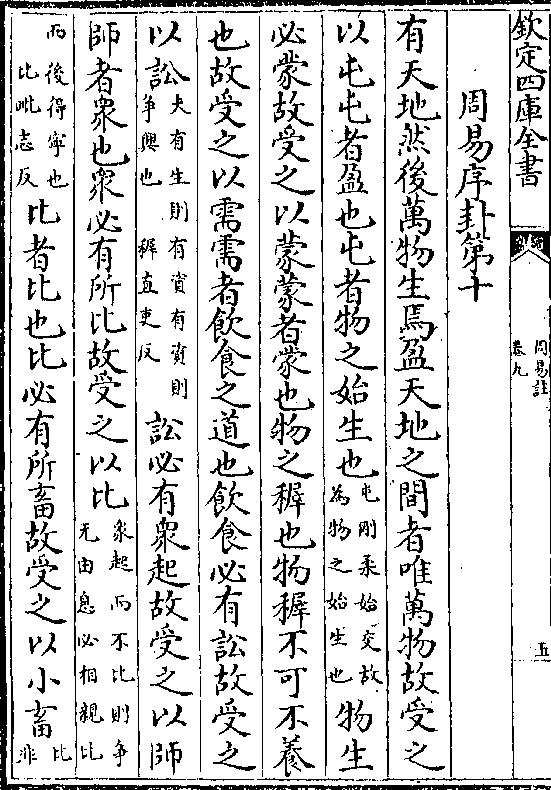 欽定四庫全書
周易註
卷九
五
周易序卦第十
有天地然後萬物生焉盈天地之間者唯萬物故受之
以屯屯者盈也屯者物之始生也屯剛柔始交故為物之始生也物生
必蒙故受之以蒙蒙者蒙也物之穉也物穉不可不養
也故受之以需需者飲食之道也飲食必有訟故受之
以訟夫有生則有資有資則爭興也 穉直吏反訟必有衆起故受之以師
師者衆也衆必有所比故受之以比衆起而不比則爭无由息必相親比
而後得寧也 比毗志反比者比也比必有所畜故受之以小畜比非